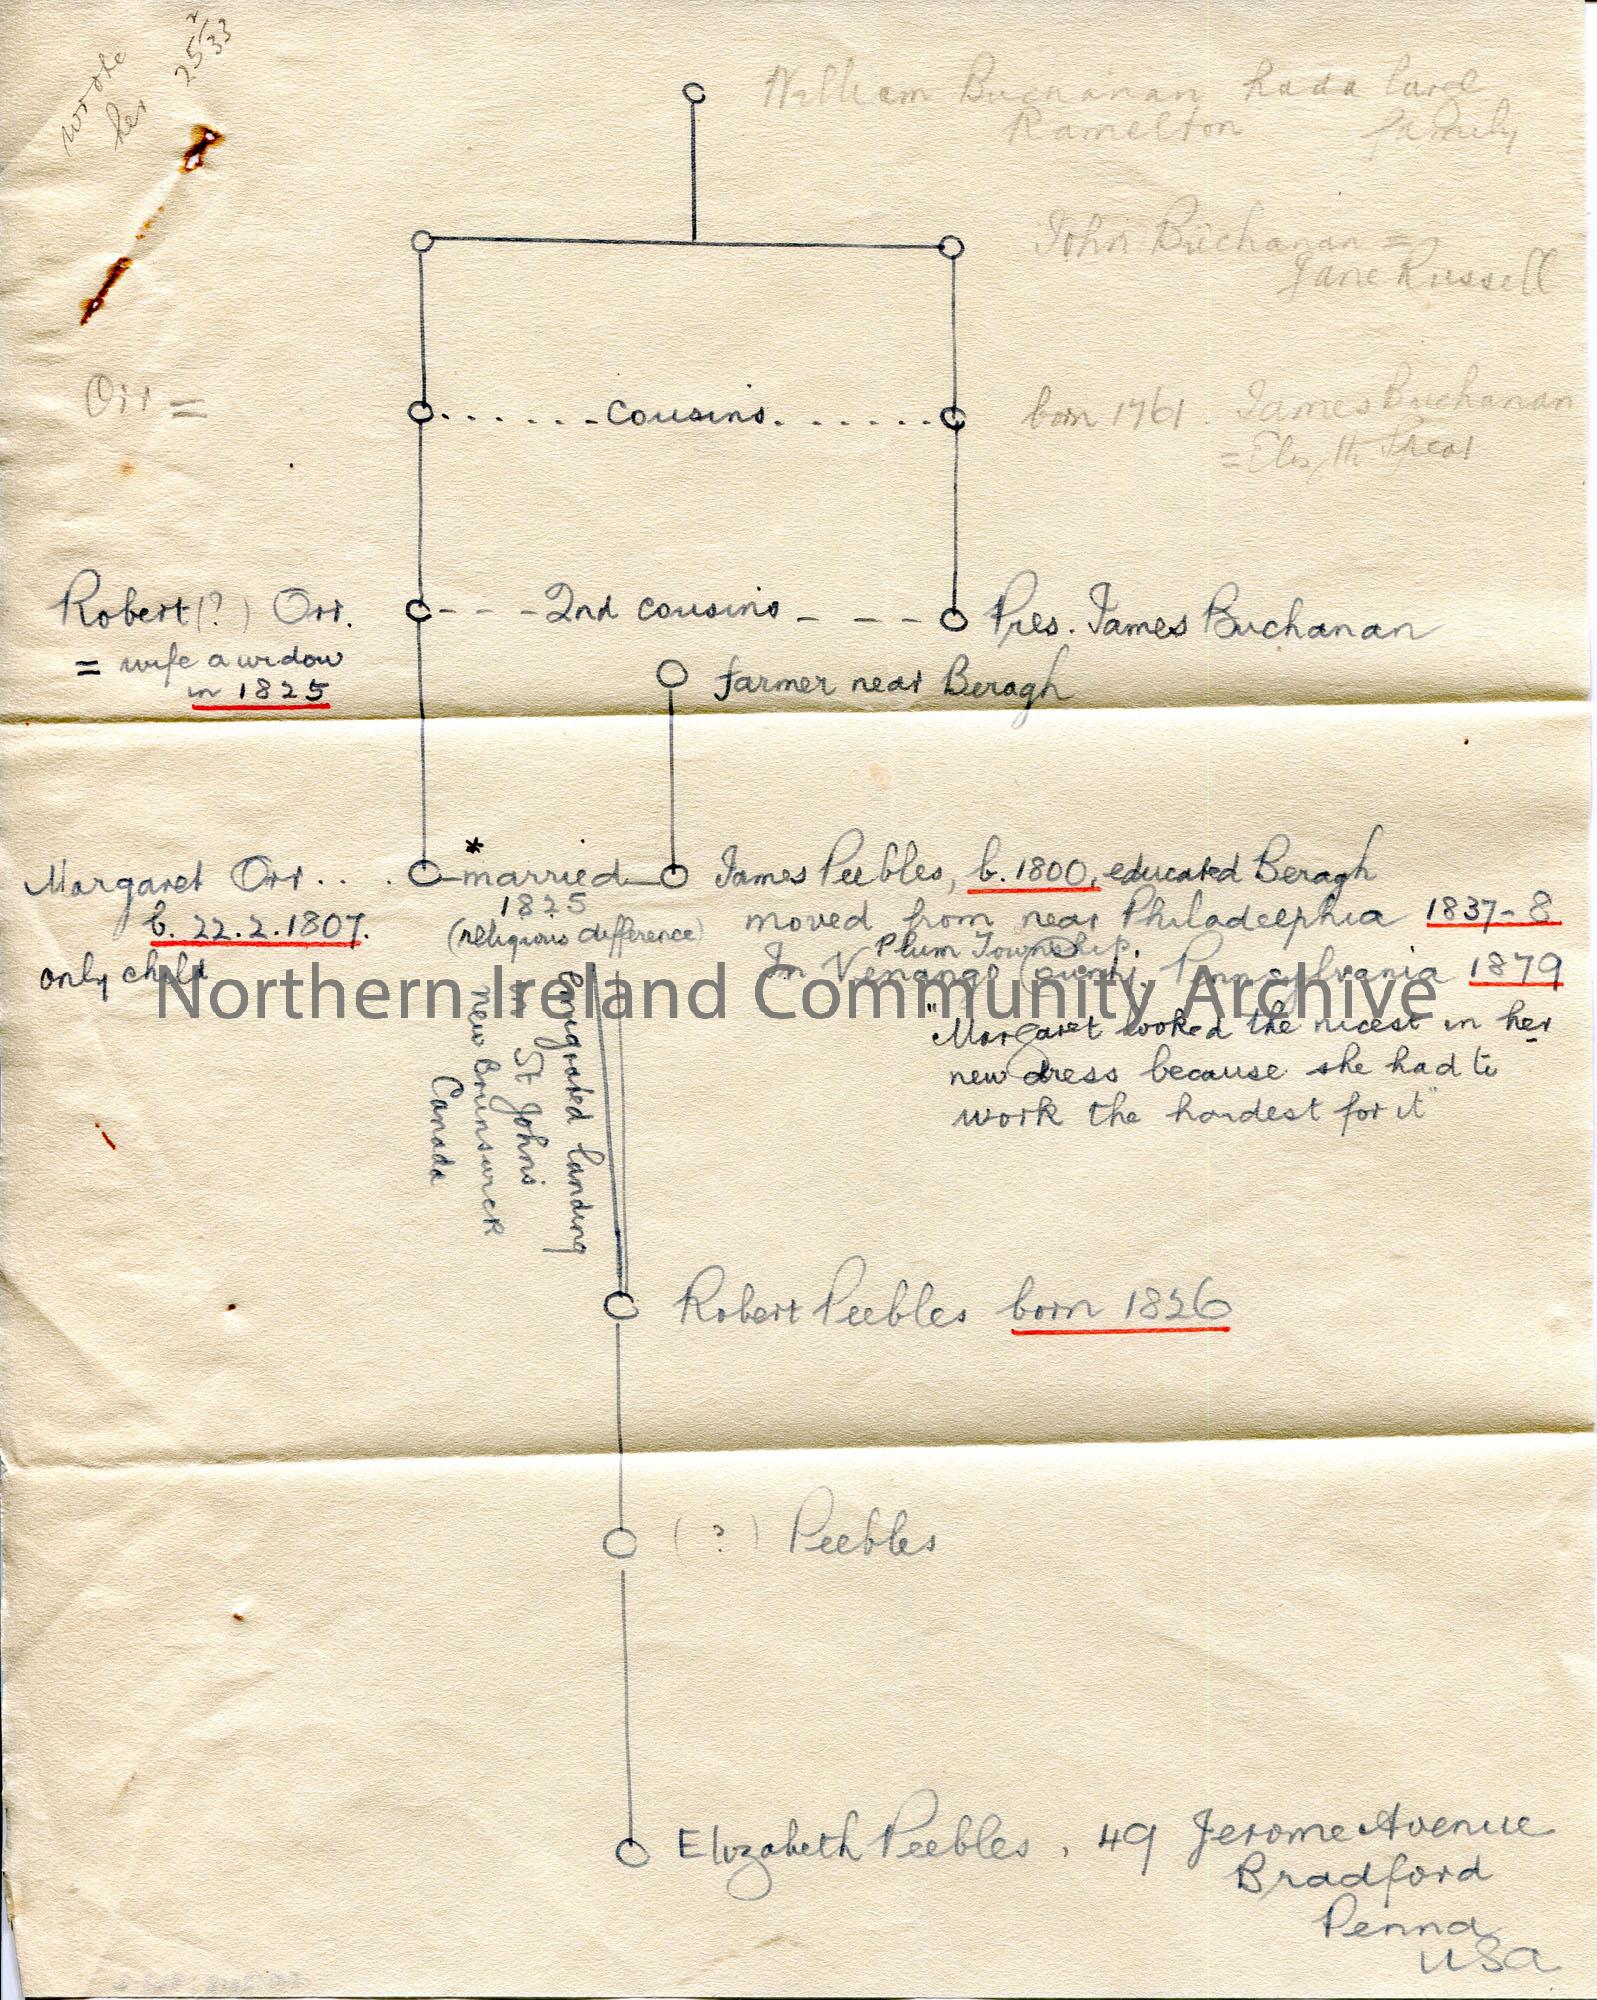 wrote
her
25/2/33
William Buchanan had a large
Ramelton family
John Buchanan =
Jane Russell
Orr =
cousins
born 1761. James Buchanan
= Elizth Spear
Robert (?) Orr.
2nd cousins
Pres. James Buchanan
= wife a widow
in 1825
farmer near Beragh
Margaret Orr . . . .
*
married
James Peebles, b. 1800, educated Beragh
b. 22.2.1807.
1825
moved from near Philadelphia 1837-8
only child
(religious difference)
Plum Township.
In Venango County, Pennsylvania 1879
Northern Ireland Community Archive
"Margaret looked the nicest in her
new dress because she had to
work the hardest for it"
Emigrated landing
in St John's
New Brunswick
Canada
Robert Peebles born 1826
( ? ) Peebles
Elizabeth Peebles, 49 Jerome Avenue
Bradford
Penna
USA